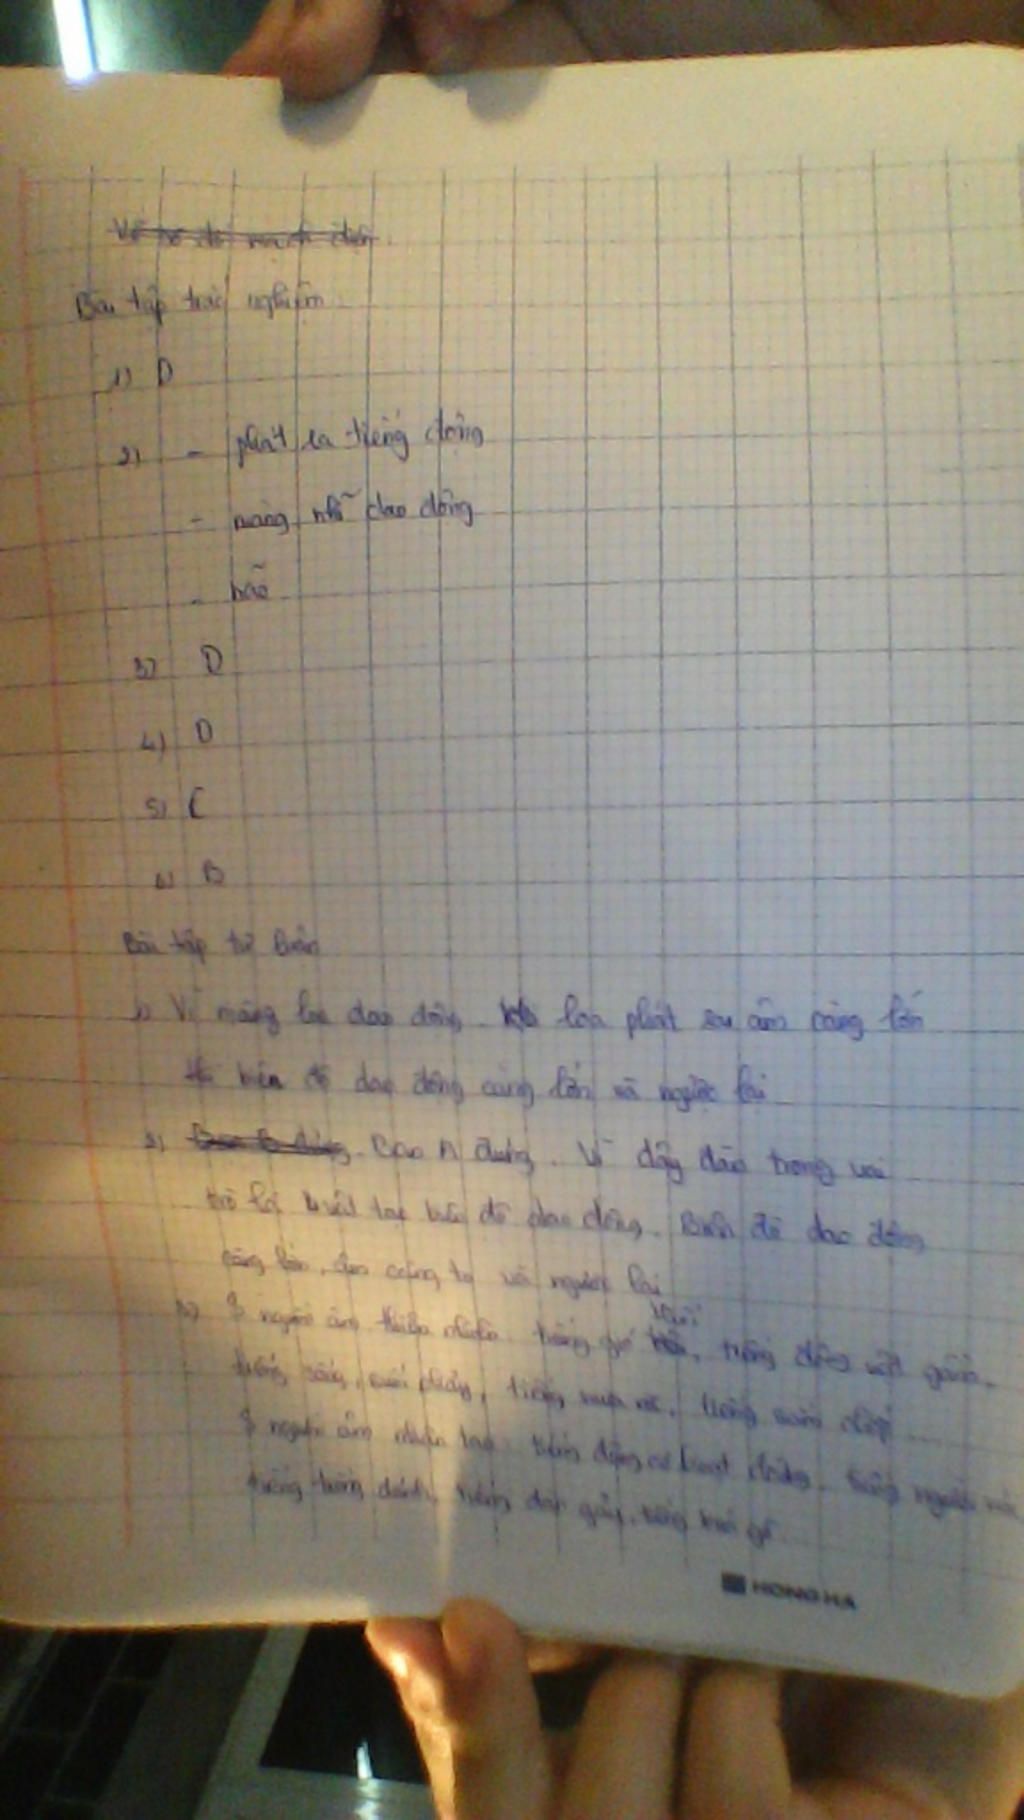 Vẽ sơ đồ mạch điện.
Bài tập trắc nghiệm
1) D
2) - phát ra tiếng động
- màng nhĩ dao động
- não
3) D
4) D
5) C
6) B
Bài tập tự luận
1) Vì màng loa dao động. Khi loa phát ra âm càng lớn
thì biên độ dao động càng lớn và ngược lại
2) Bạn A đúng. Vì dây đàn trong vai
trò là vật tạo biên độ dao động. Biên độ dao động
càng lớn, âm càng to và ngược lại
3) 5 nguồn âm thiên nhiên: tiếng gió thổi,
tiếng sóng, suối chảy, tiếng mưa rơi, tiếng sấm
5 nguồn âm nhân tạo: tiếng động cơ hoạt động, tiếng người
tiếng trống đánh, tiếng đàn gảy, tiếng
HONG HA